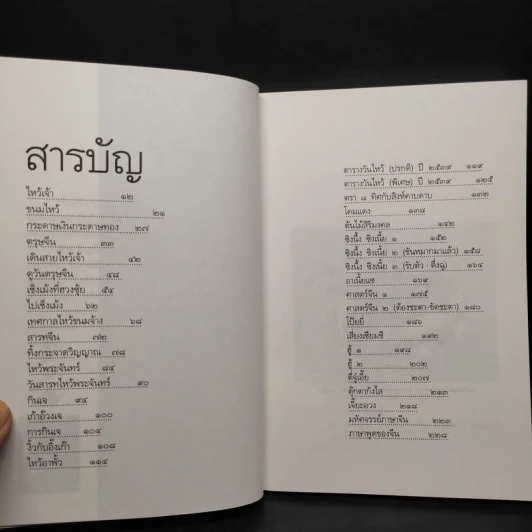 สารบัญ
ไหว้เจ้า ๑๒
ขนมไหว้ ๒๑
กระดาษเงินกระดาษทอง ๒๗
ตรุษจีน ๓๓
เดินสายไหว้เจ้า ๔๒
ดูวันตรุษจีน ๔๘
เช็งเม้งที่ฮวงซุ้ย ๕๔
ไปเช็งเม้ง ๖๒
เทศกาลไหว้ขนมจ้าง ๖๘
สารทจีน ๗๒
ทิ้งกระจาดวิญญาณ ๗๘
ไหว้พระจันทร์ ๘๔
วันสารทไหว้พระจันทร์ ๙๐
กินเจ ๙๕
เก้าอ๊วงเจ ๑๐๐
การกินเจ ๑๐๔
งิ้วกับอิ้งเก๊า ๑๐๘
ไหว้อาพั้ว ๑๑๔
ตารางวันไหว้ (ปรกติ) ปี ๒๕๓๙ ๑๑๙
ตารางวันไหว้ (พิเศษ) ปี ๒๕๓๙ ๑๒๕
ตรา ๘ ทิศกับสิงห์คาบดาบ ๑๓๒
โคมแดง ๑๓๘
ต้นไม้สิริมงคล ๑๔๒
ซิงนึ้ง ซิงเนี้ย ๑ ๑๕๒
ซิงนึ้ง ซิงเนี้ย ๒ (ขันหมากมาแล้ว) ๑๕๘
ซิงนึ้ง ซิงเนี้ย ๓ (รับตัว - ตึ่งฉู่) ๑๖๔
อาเนี้ยแซ ๑๖๙
ศาสตร์จีน ๑ ๑๗๕
ศาสตร์จีน ๒ (ต้องชะตา-ขัดชะตา) ๑๘๐
โป๊ยยี่ ๑๘๖
เสี่ยงเซียมซี ๑๙๒
ฮู้ ๑ ๑๙๘
ฮู้ ๒ ๒๐๒
ตี่จู่เอี๊ย ๒๐๗
ตุ๊กตากังไส ๒๑๓
เจี๊ยะอวง ๒๑๘
มหัศจรรย์ภาษาจีน ๒๒๓
ภาษาพูดของจีน ๒๒๘